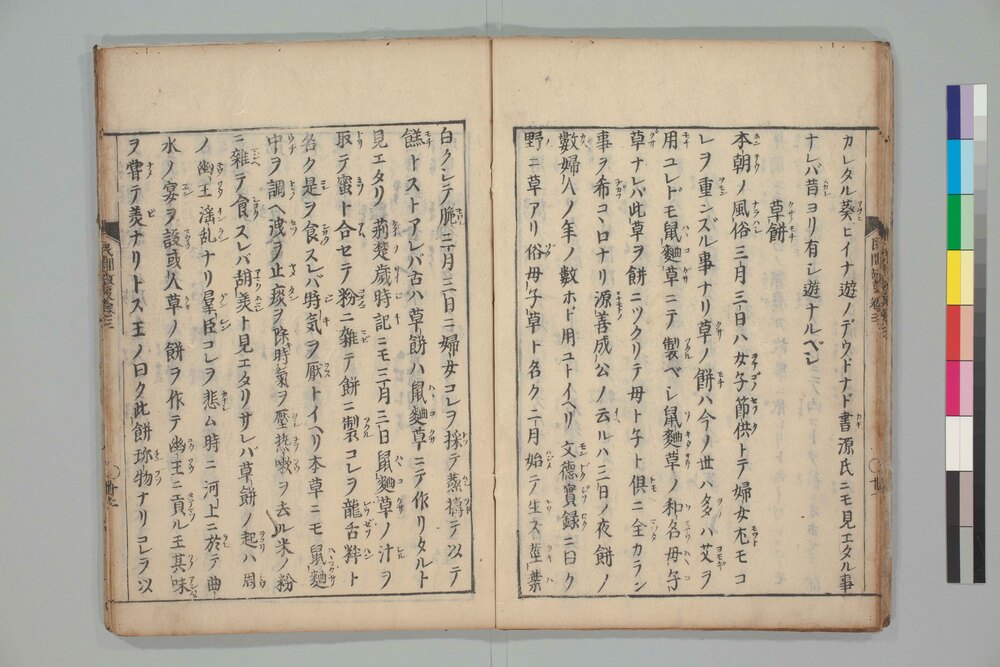 カレタル葵ヒイナ遊ノデウドナド書源氏ニモ見エタル事
ナレバ昔ヨリ有シ遊ナルベシ
草餅
本朝ノ風俗三月三日ハ女子節供トテ婦女尤モコ
レヲ重ンズル事ナリ草ノ餅ハ今ノ世ハ多ハ艾ヲ
用ユレドモ鼠麹草ニテ製ベシ鼠麹草ノ和名母子
草ナレバ此草ヲ餅ニツクリテ母ト子ト倶ニ全カラン
事ヲ希コヽロナリ源善成公ノ云ルハ三日ノ夜餅ノ
數婦人ノ年ノ數ホド用ユトイヘリ文德實録ニ曰ク
野ニ草アリ俗母子草ト名ク二月始テ生ズ莖葉
白クシテ脆三月三日ニ婦女コレヲ採テ蒸擣テ以テ
餻トストアレバ古ハ草餅ハ鼠麹草ニテ作リタルト
見エタリ荊楚歳時記ニモ三月三日鼠麹草ノ汁ヲ
取テ蜜ト合セテ粉ニ雜テ餅ニ製コレヲ龍舌粄ト
名ク是ヲ食スレバ時気ヲ厭トイヘリ本草ニモ鼠麹
中ヲ調ヘ洩ヲ止痰ヲ除時氣ヲ壓熱嗽ヲ去ル米ノ粉
ニ雜テ食スレバ甜美ト見エタリサレバ草餅ノ起ハ周
ノ幽王淫乱ナリ羣臣コレヲ悲ム時ニ河上ニ於テ曲
水ノ宴ヲ設或人草ノ餅ヲ作テ幽王ニ貢ル王其味
ヲ嘗テ美ナリトス王ノ曰ク此餅珎物ナリコレヲ以